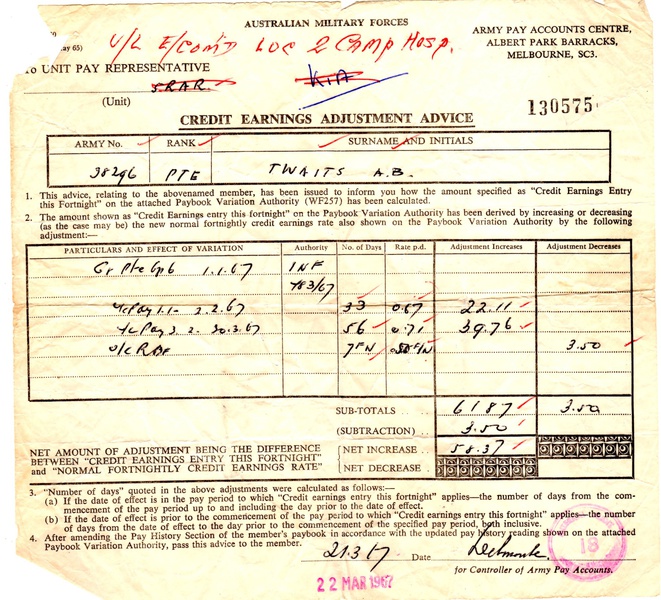 AUSTRALIAN MILITARY FORCES
ay 65)
U/L E/Com'd LOC 2 Camp Hosp.
ARMY PAY ACCOUNTS CENTRE,
ALBERT PARK BARRACKS,
MELBOURNE, SC3.
To UNIT PAY REPRESENTATIVE
5RAR.
KIA
(Unit)
130575
CREDIT EARNINGS ADJUSTMENT ADVICE
ARMY No. RANK SURNAME AND INITIALS
38296 PTE TWAITS A.B.
1. This advice, relating to the abovenamed member, has been issued to inform you how the amount specified as "Credit Earnings Entry
this Fortnight" on the attached Paybook Variation Authority (WF257) has been calculated.
2. The amount shown as "Credit Earnings entry this fortnight" on the Paybook Variation Authority has been derived by increasing or decreasing
(as the case may be) the new normal fortnightly credit earnings rate also shown on the Paybook Variation Authority by the following
adjustment:—
PARTICULARS AND EFFECT OF VARIATION Authority No. of Days Rate p.d. Adjustment Increases Adjustment Decreases
Gr Pte Gp6 1.1.67 INF
783/67
Pay 1.1- 2.2.67 33 0.67 22.11
Pay 3.2. 30.3.67 56 0.71 39.76
U/C RBF 7FN .50 F/N 3.50
SUB-TOTALS .. .. 61 87 3.50
(SUBTRACTION) .. 3.50
NET AMOUNT OF ADJUSTMENT BEING THE DIFFERENCE
BETWEEN "CREDIT EARNINGS ENTRY THIS FORTNIGHT"
and "NORMAL FORTNIGHTLY CREDIT EARNINGS RATE"
NET INCREASE .. 58.37
NET DECREASE ..
3. "Number of days" quoted in the above adjustments were calculated as follows:—
(a) If the date of effect is in the pay period to which "Credit earnings entry this fortnight" applies—the number of days from the com-
mencement of the pay period up to and including the day prior to the date of effect.
(b) If the date of effect is prior to the commencement of the pay period to which "Credit earnings entry this fortnight" applies—the number
of days from the date of effect to the day prior to the commencement of the specified pay period, both inclusive.
4. After amending the Pay History Section of the member's paybook in accordance with the updated pay history reading shown on the attached
Paybook Variation Authority, pass this advice to the member.
21.3.67 Date
18
for Controller of Army Pay Accounts.
22 MAR 1967